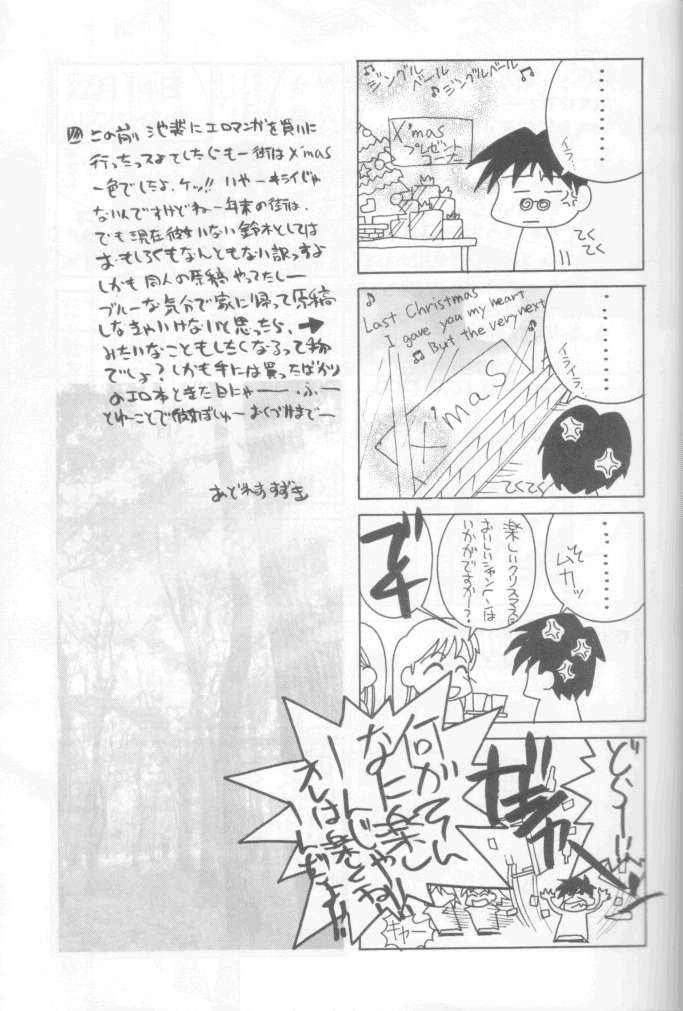 ♪ジングルベール ♪ジングルベール♪
X'mas
プレゼントコーナー
・・・・・・・・
イラ…
てくてく
♪
Last Christmas
I gave you my heart
♫ But the very next
♪
X'mas
・・・・・・・・
イライラ…
てくてく
・・・・・・・・
ムカッ
楽しいクリスマスに
おいしいシャンペンは
いかがですかー?
でや
どゝーん
キャー
何がそんなに楽しーんじゃ
オレは楽しくねーんだよ!!
この前 池袋にエロマンガを買いに
行ったってよてしたぐもー街はX'mas
一色でしたよ、ケッ!! いやーキライじゃ
ないんですけどねー年末の街は、
でも現在彼女いない鈴木としては
おもしろくもなんともない訳っすよ
しかも同人の原稿やってたしー
ブルーな気分で家に帰って原稿
しなきゃいけないと思ったら、➡
みたいなこともしたくなるって物
でしょ? しかも手には買ったばかり
のエロ本ときた日にゃー ふー
とゆーことで
あどれすすずき